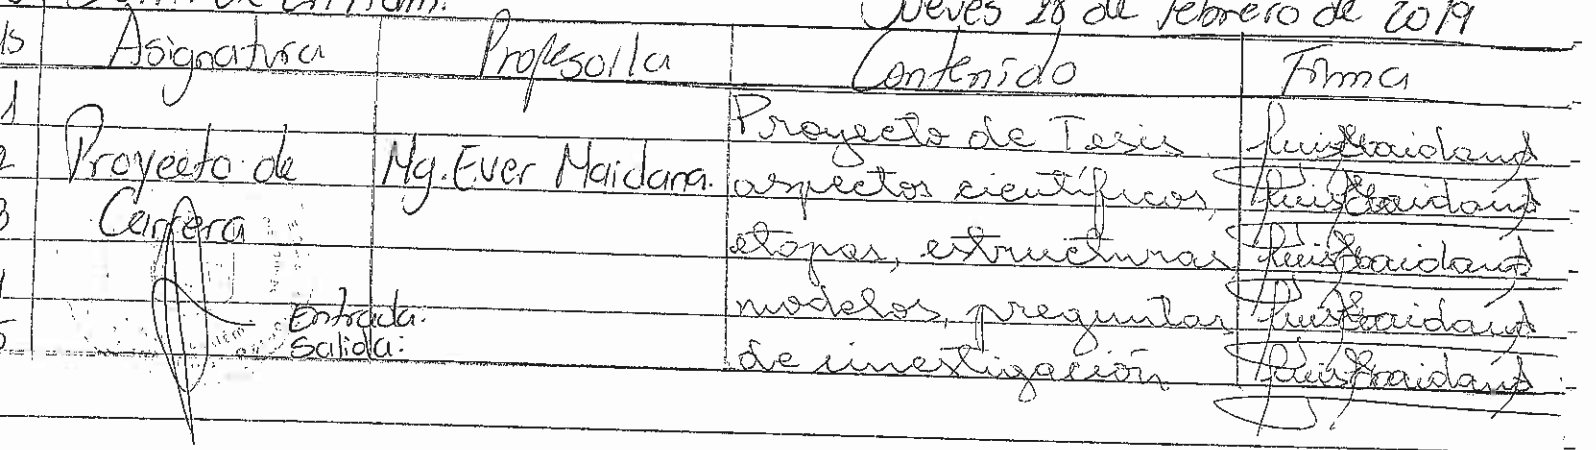 Jueves 28 de febrero de 2019
Hs Asignatura Profesor/la Contenido Firma
1 Proyecto de Tesis
2 Proyecto de Mg. Ever Maidana. aspectos científicos,
3 Carrera etapas, estructuras
4 Entrada: modelos, preguntas
5 Salida: de investigación